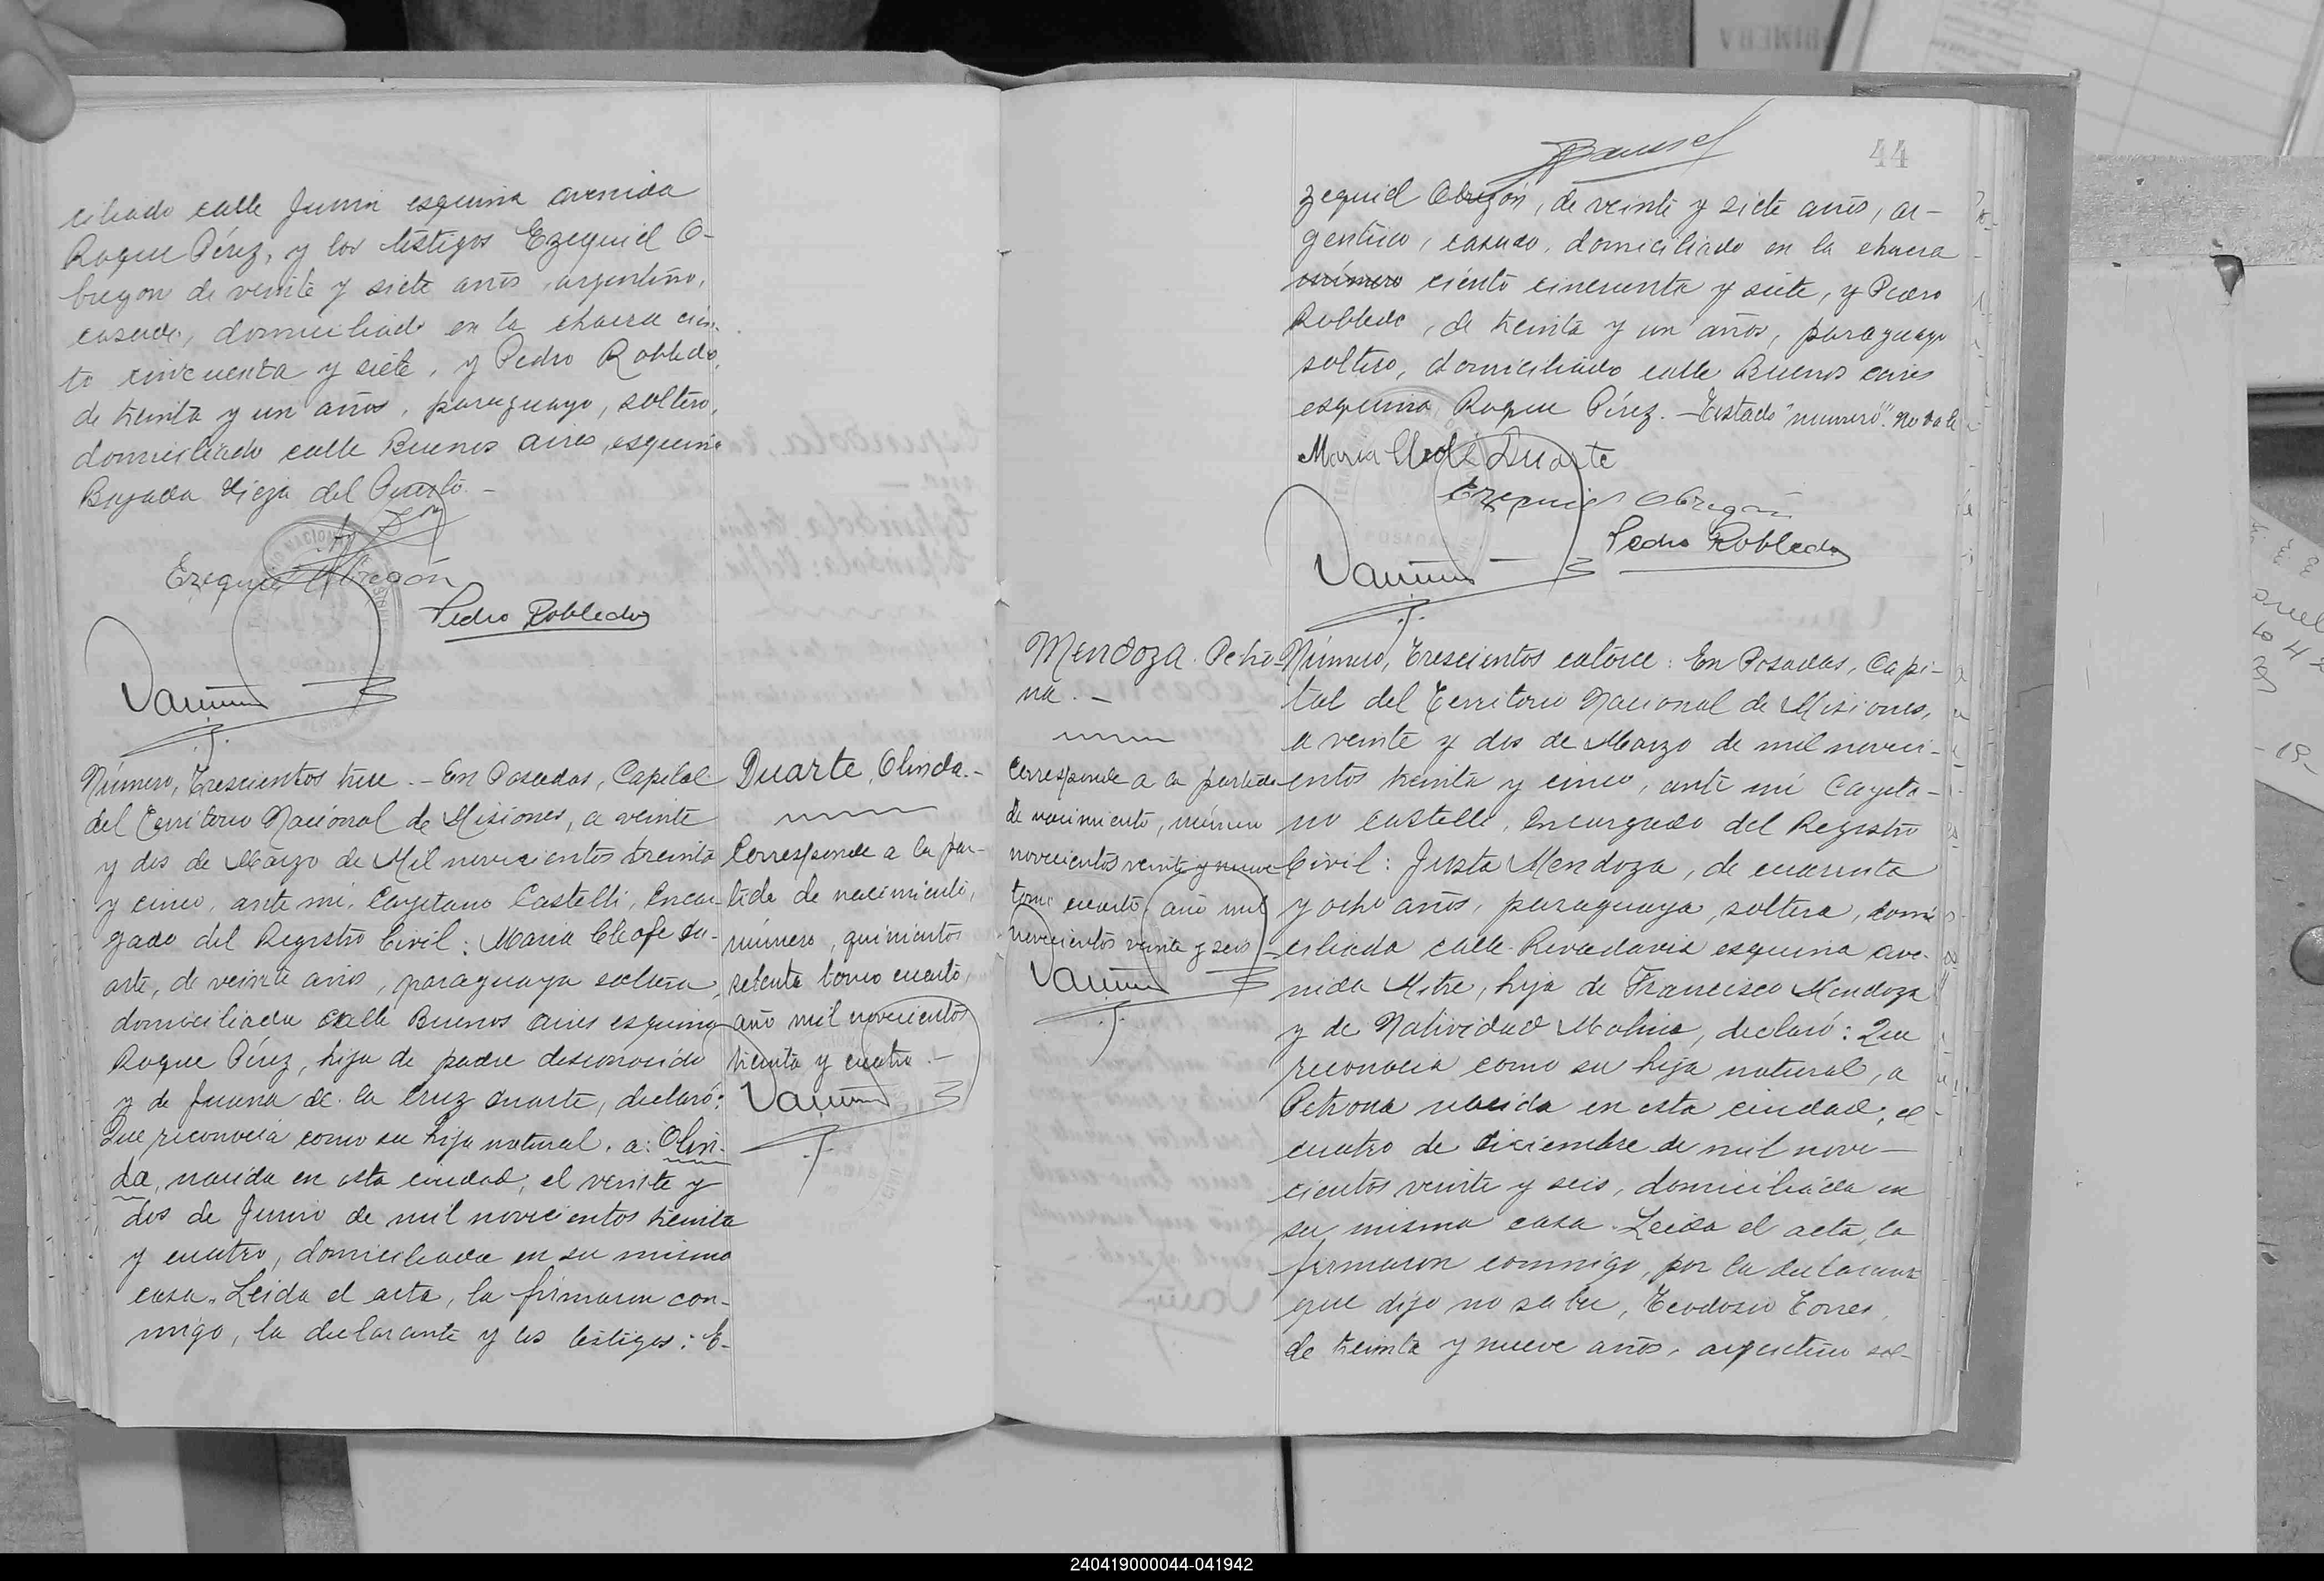 ciliado calle Junin esquina avenida
Roque Pérez, y los testigos Ezequiel O-
bregon de veinte y siete años, argentino,
casado, domiciliado en la chacra cien-
to cincuenta y siete, y Pedro Robledo,
de treinta y un años, paraguayo, soltero,
domiciliado calle Buenos Aires, esquina
Bajada Vieja del Puerto. -
Ezequiel Obregón
Pedro Robledo
Número, Trescientos trece. - En Posadas, Capital
del Territorio Nacional de Misiones, a veinte
y dos de Marzo de Mil novecientos treinta
y cinco, ante mi, Cayetano Castelli, Encar-
gado del Registro Civil: Maria Cleofe Du-
arte, de veinte años, paraguaya soltera,
domiciliada calle Buenos Aires esquina
Roque Pérez, hija de padre desconocido
y de Juana de la Cruz Duarte, declaró:
Que reconocia como su hija natural, a: Olin-
da, nacida en esta ciudad, el veinte y
dos de Junio de mil novecientos treinta
y cuatro, domiciliada en su misma
casa. Leida el acta, la firmaron con-
migo, la declarante y los testigos: E-
Duarte, Olinda. -
Corresponde a la par-
tida de nacimiento,
número, quinientos
setenta tomo cuarto,
año mil novecientos
treinta y cuatro. -
44
zequiel Obregón, de veinte y siete años, ar-
gentino, casado, domiciliado en la chacra
número ciento cincuenta y siete, y Pedro
Robledo, de treinta y un años, paraguayo
soltero, domiciliado calle Buenos Aires
esquina Roque Pérez. - Testado "numero". No vale
Maria Cleofé Duarte
Ezequiel Obregón
Pedro Robledo
Mendoza. Petro-
na. -
Corresponde a la partida
de nacimiento, número
novecientos veinte y nueve
tomo cuarto, año mil
novecientos veinte y seis
Número, Trescientos catorce: En Posadas, Capi-
tal del Territorio Nacional de Misiones,
a veinte y dos de Marzo de mil noveci-
entos treinta y cinco, ante mi Cayeta-
no Castelli, Encargado del Registro
Civil: Justa Mendoza, de cuarenta
y ocho años, paraguaya, soltera, domi-
ciliada calle Rivadavia esquina ave-
nida Mitre, hija de Francisco Mendoza
y de Natividad Molina, declaró: Que
reconocia como su hija natural, a
Petrona nacida en esta ciudad, el
cuatro de diciembre de mil nove-
cientos veinte y seis, domiciliada en
su misma casa. Leida el acta, la
firmaron conmigo, por la declarante
que dijo no saber, Teodosio Torres,
de treinta y nueve años, argentino sol-
240419000044-041942